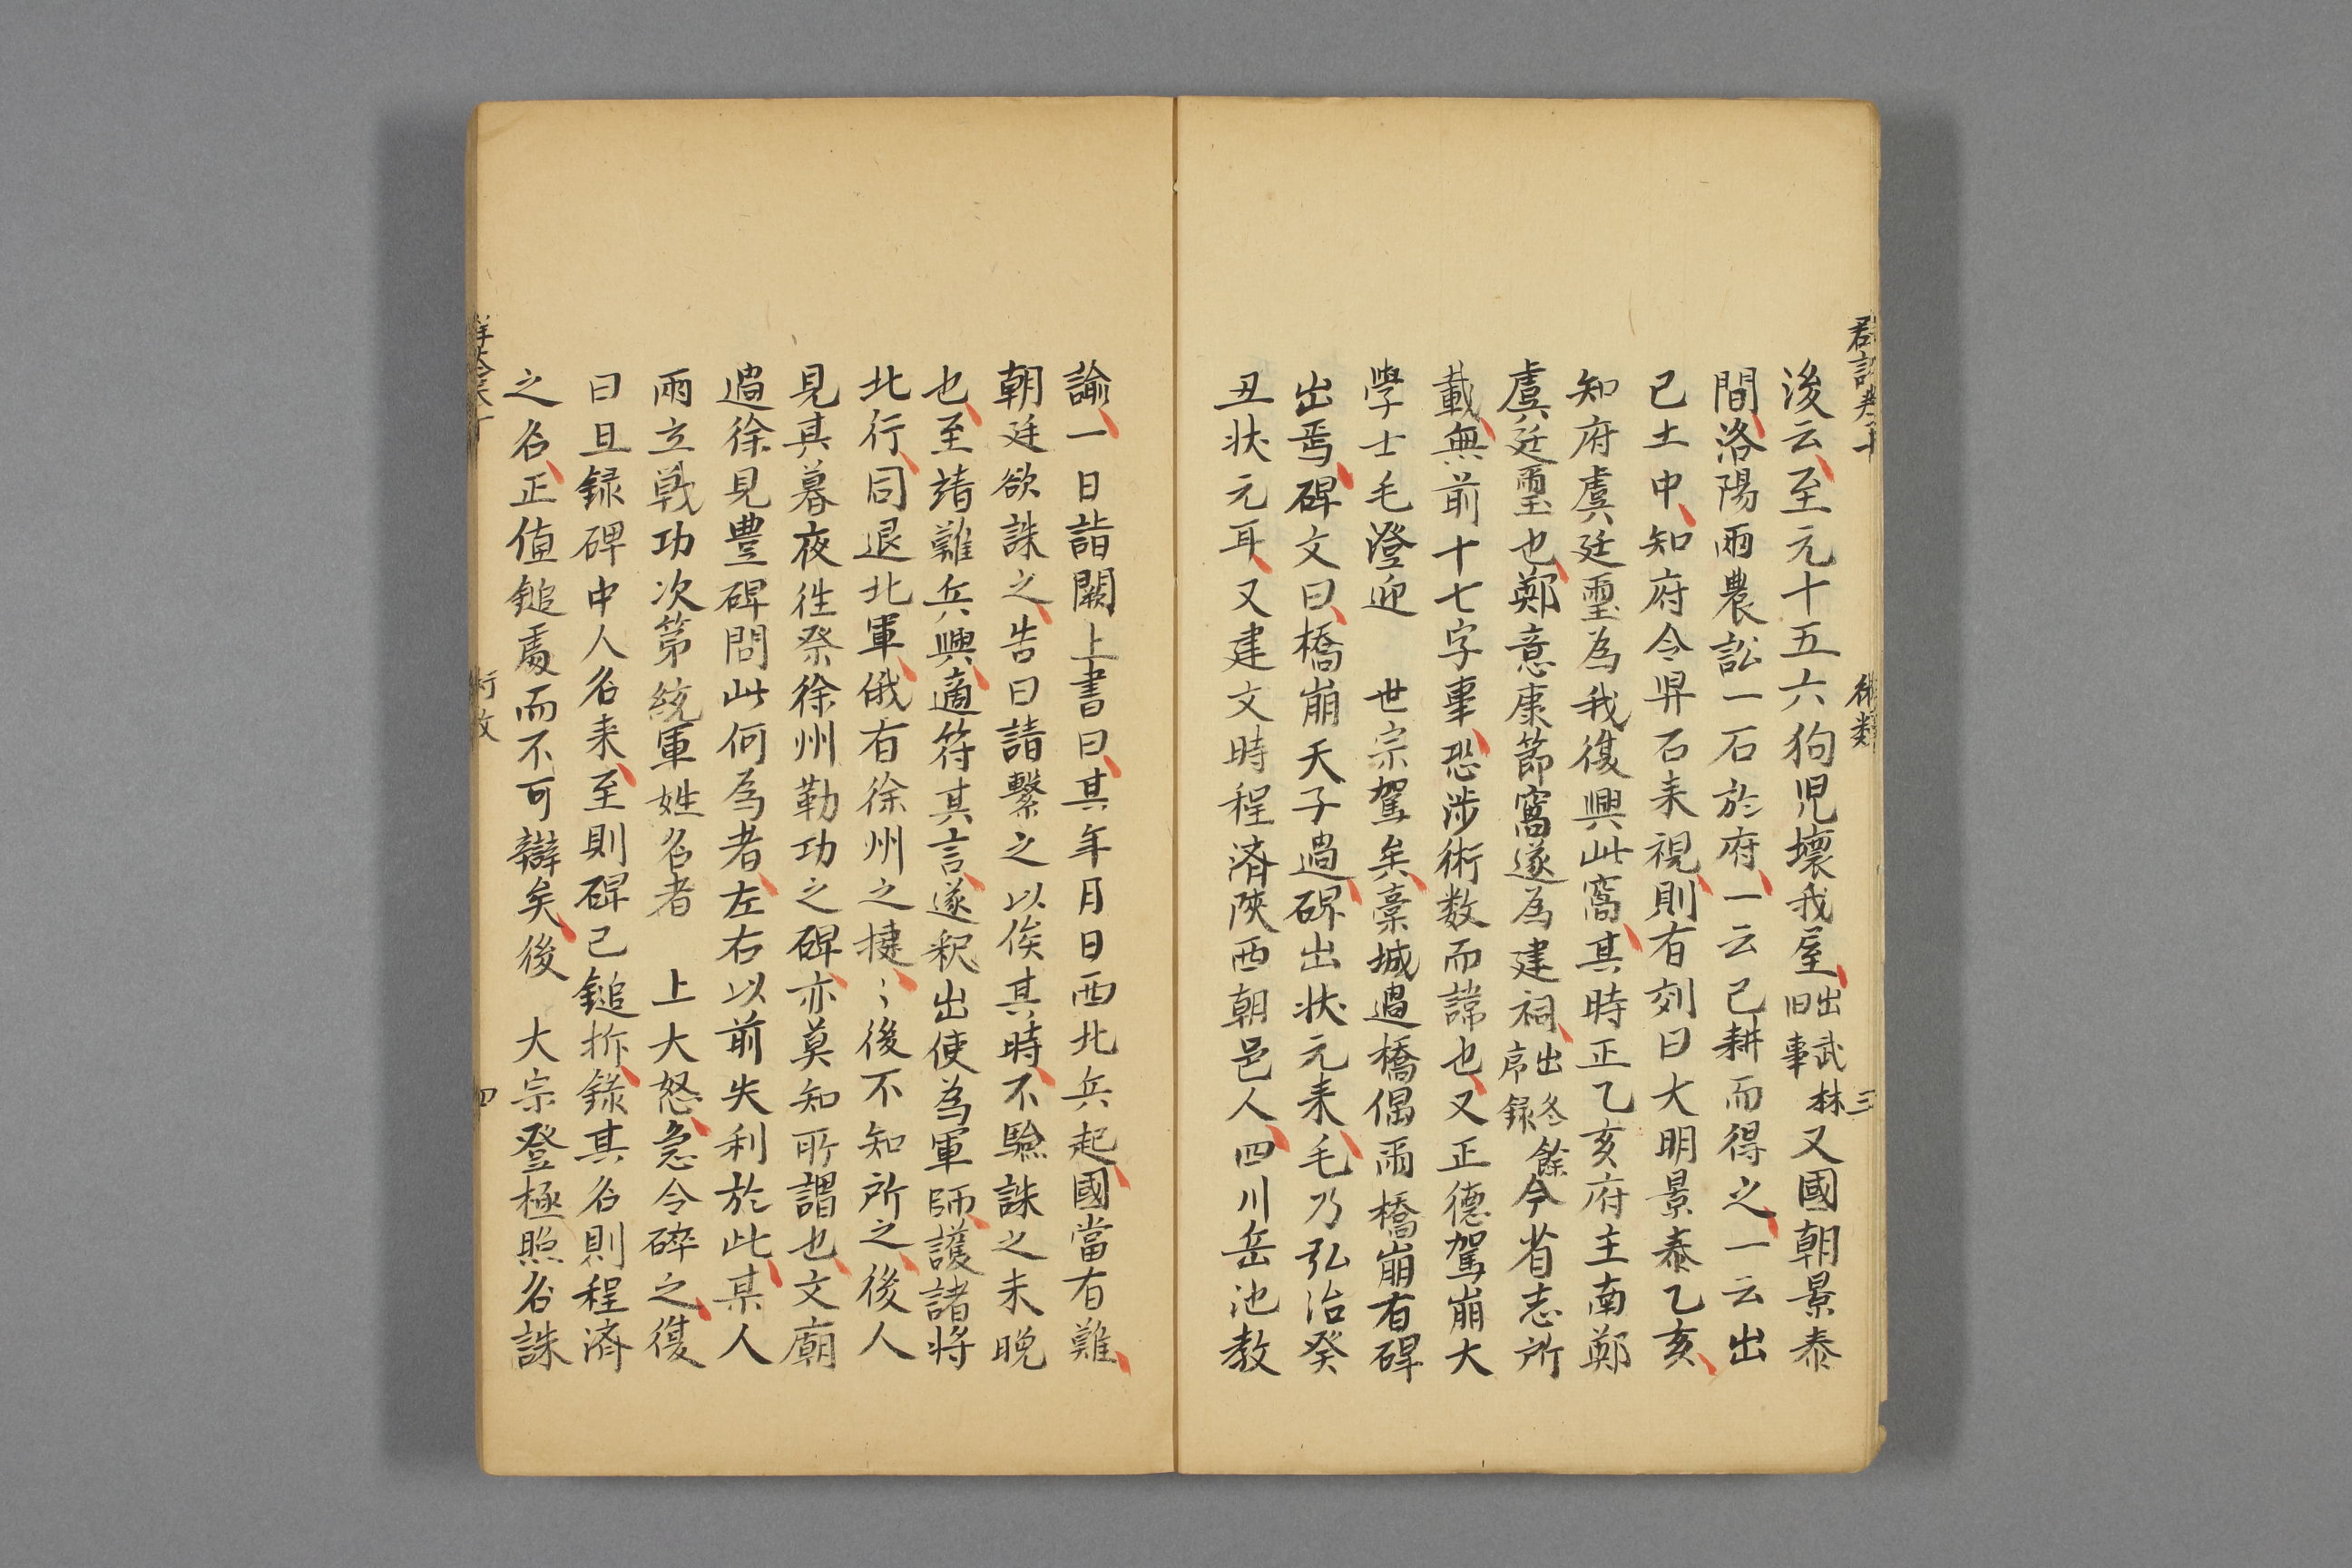 後云至元十五六狗児壞我屋出武林旧事又國朝景泰
間洛陽兩農訟一石於府一云已耕而得之一云出
已土中知府令舁石来視則有刻曰大明景泰乙亥
知府虞廷璽為我復興此窩其時正乙亥府主南鄭
虞廷璽也鄭意康節窩遂為建祠出冬餘序録今省志所
載無前十七字事恐涉術数而諱也又正德駕崩大
學士毛澄迎 世宗駕矣藁城過橋偶雨橋崩有碑
出焉碑文曰橋崩天子過碑出状元来毛乃弘治癸
丑状元耳又建文時程済陝西朝邑人四川岳池教
術類
三
諭一日詣闕上書曰某年月日西北兵起國當有難
朝廷欲誅之告曰請繫之以俟其時不驗誅之未晚
也至靖難兵興適符其言遂釈出使為軍師護諸将
北行同退北軍俄有徐州之捷〻後不知所之後人
見其暮夜徃祭徐州勒功之碑亦莫知所謂也文廟
過徐見豊碑問此何為者左右以前失利於此某人
兩立戰功次第統軍姓名者 上大怒急令碎之復
曰且録碑中人名来至則碑已鎚拆錄其名則程済
之名正值鎚處而不可辯矣後 大宗登極照名誅
四